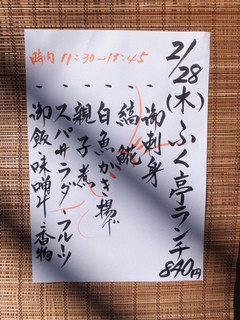 2/28(木)ふく亭ランチ 840円
御刺身
縞鯵
白魚かき揚げ
親子煮
スパサラダ・フルーツ
御飯・味噌汁・香物
時間 11:30〜13:45